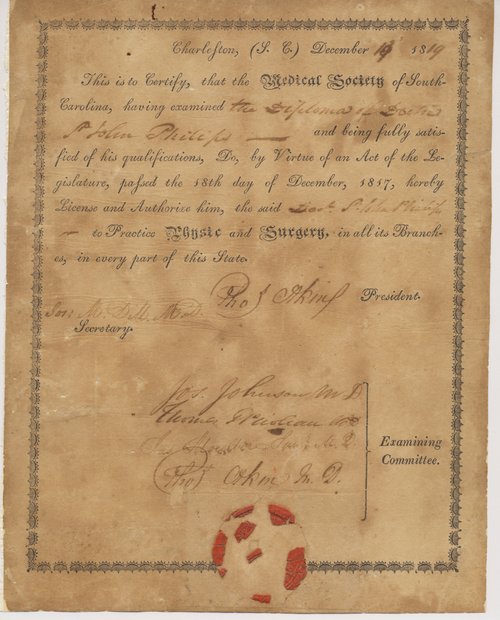 Charleston, (S. C.) December 1819
This is to Certify, that the Medical Society of South-
Carolina, having examined the Diploma of Doctor
St John Philips — and being fully satis-
fied of his qualifications, Do, by Virtue of an Act of the Le-
gislature, passed the 18th day of December, 1817, hereby
License and Authorize him, the said Doct. St John Philips
— to Practice Physic and Surgery, in all its Branch-
es, in every part of this State.
Thos Akin President.
Secretary.
Jos. Johnson M D
Thomas Prioleau MD
Thos Akin M. D.
Examining
Committee.